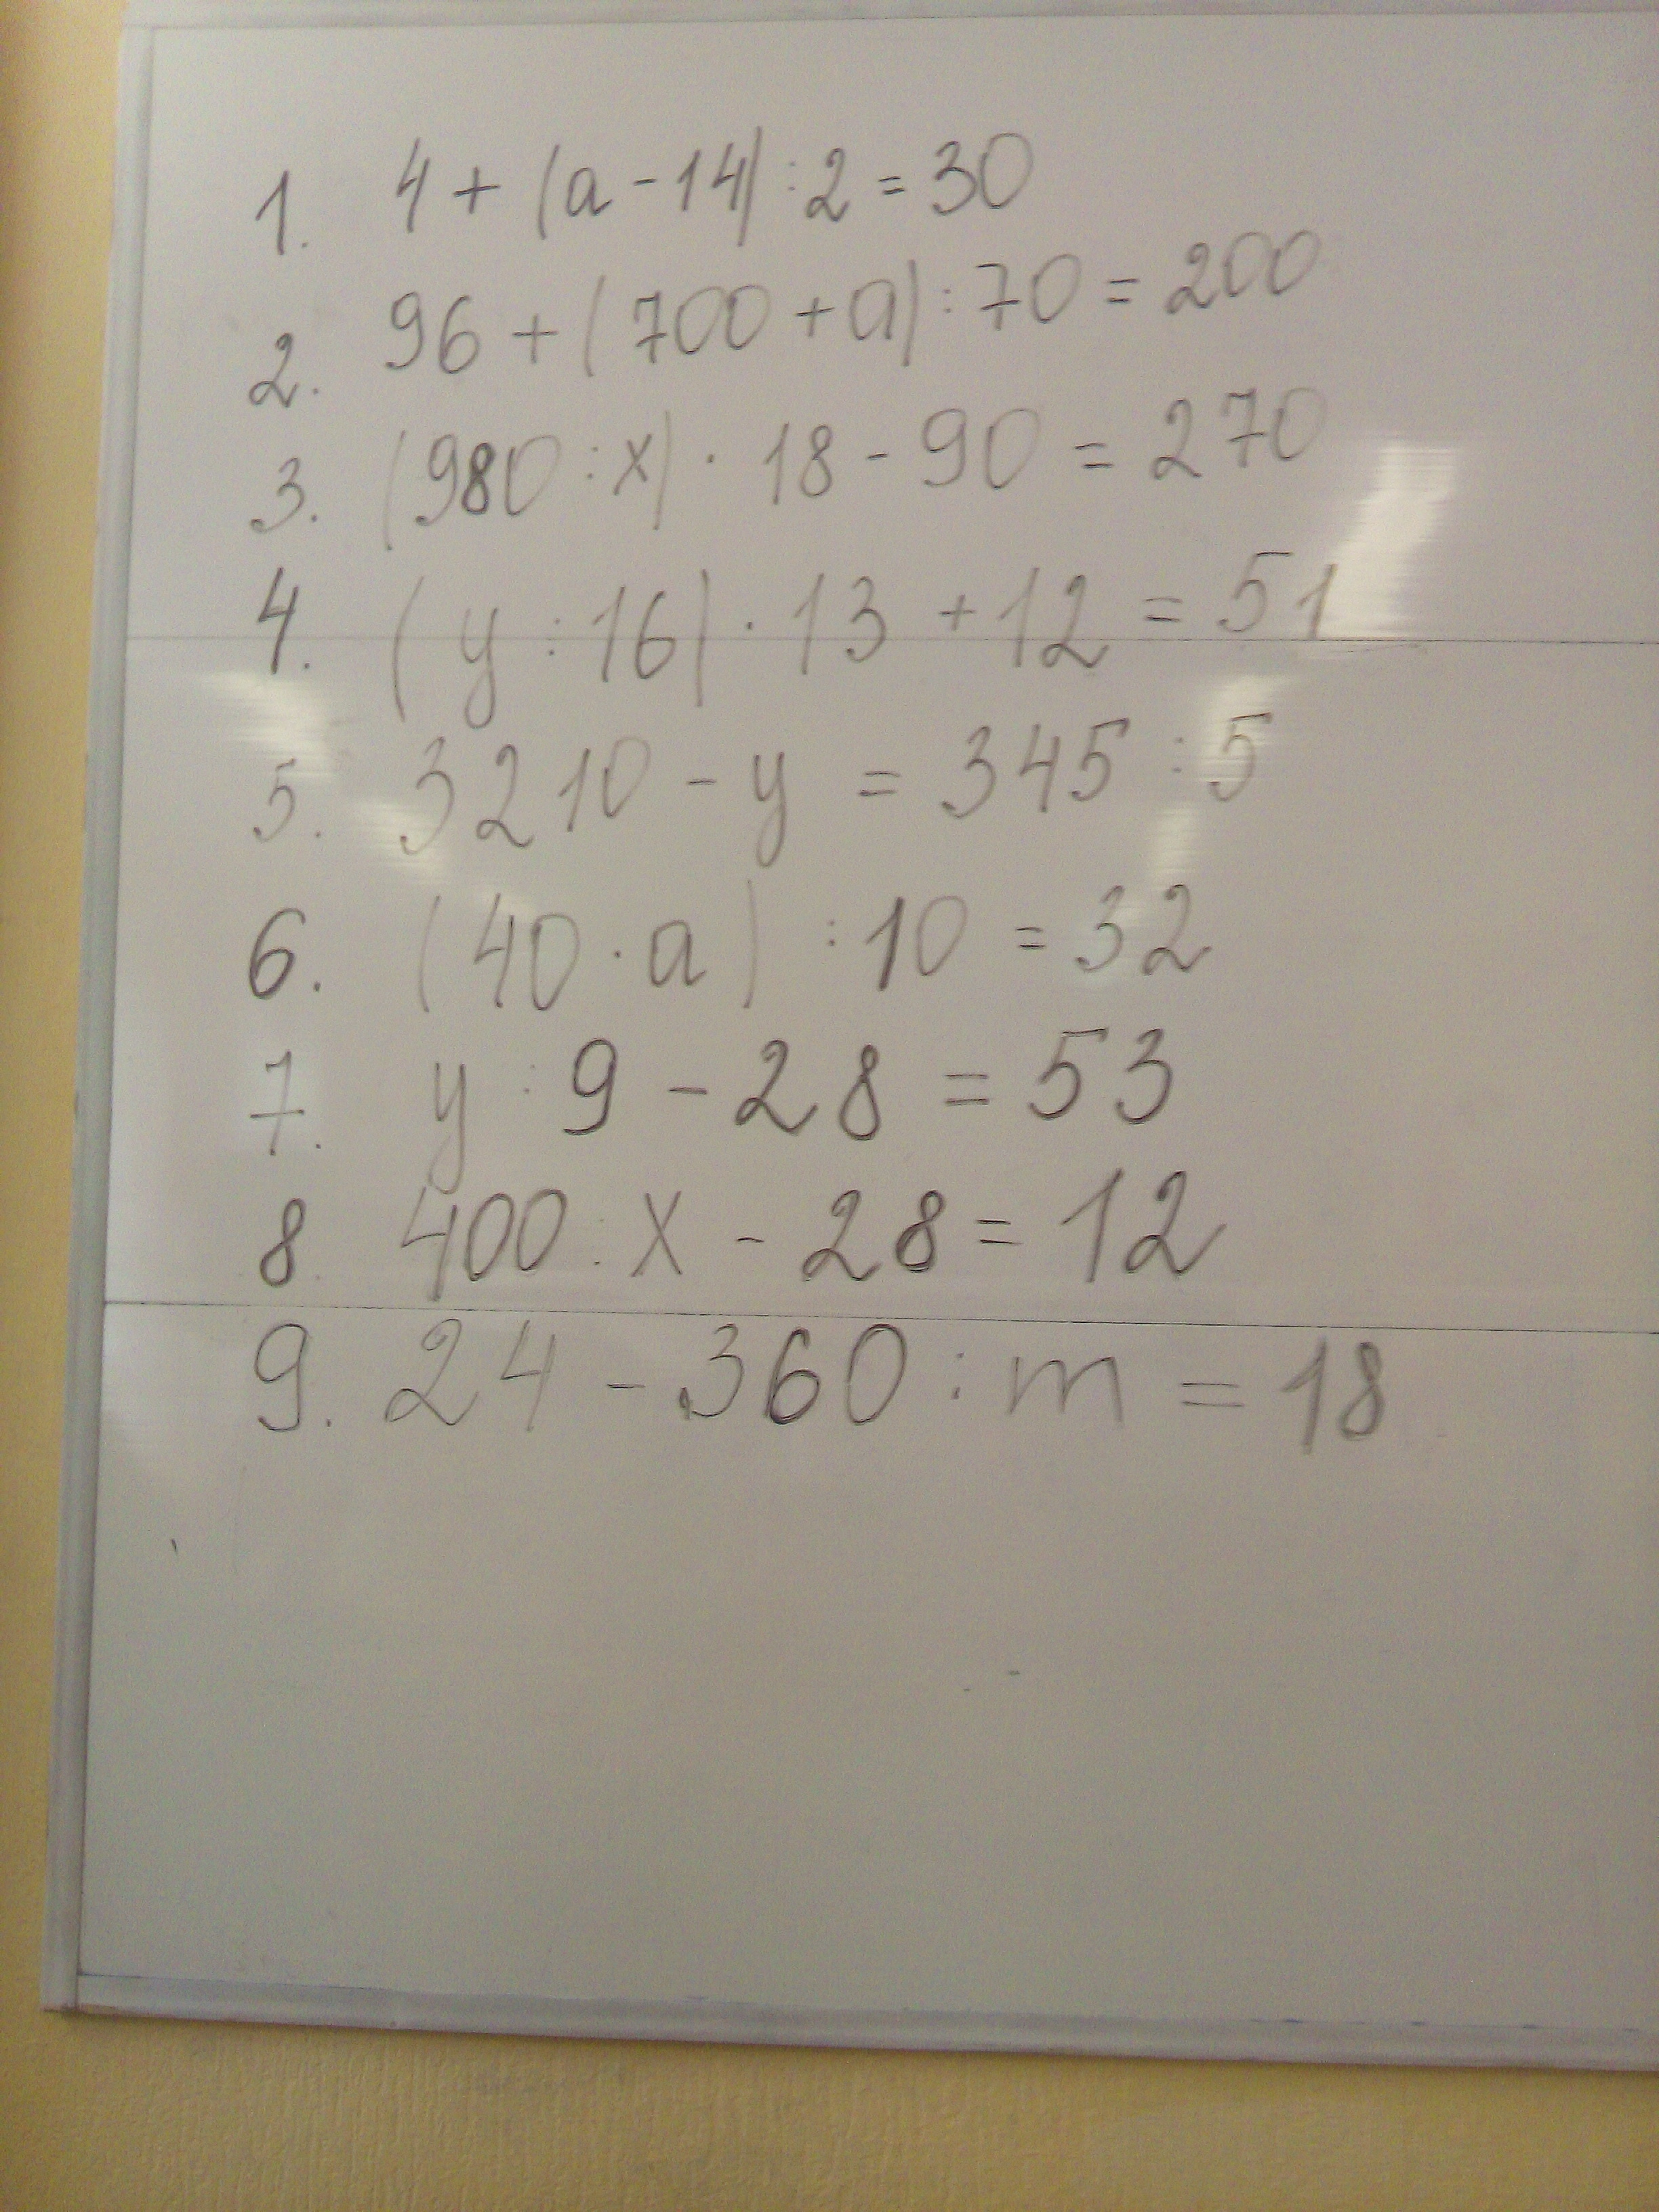 1. 4 + (a - 14) : 2 = 30
2. 96 + (700 + a) : 70 = 200
3. (980 : x) · 18 - 90 = 270
4. (y : 16) · 13 + 12 = 51
5. 3210 - y = 345 : 5
6. (40 · a) : 10 = 32
7. y : 9 - 28 = 53
8. 400 : x - 28 = 12
9. 24 - 360 : m = 18